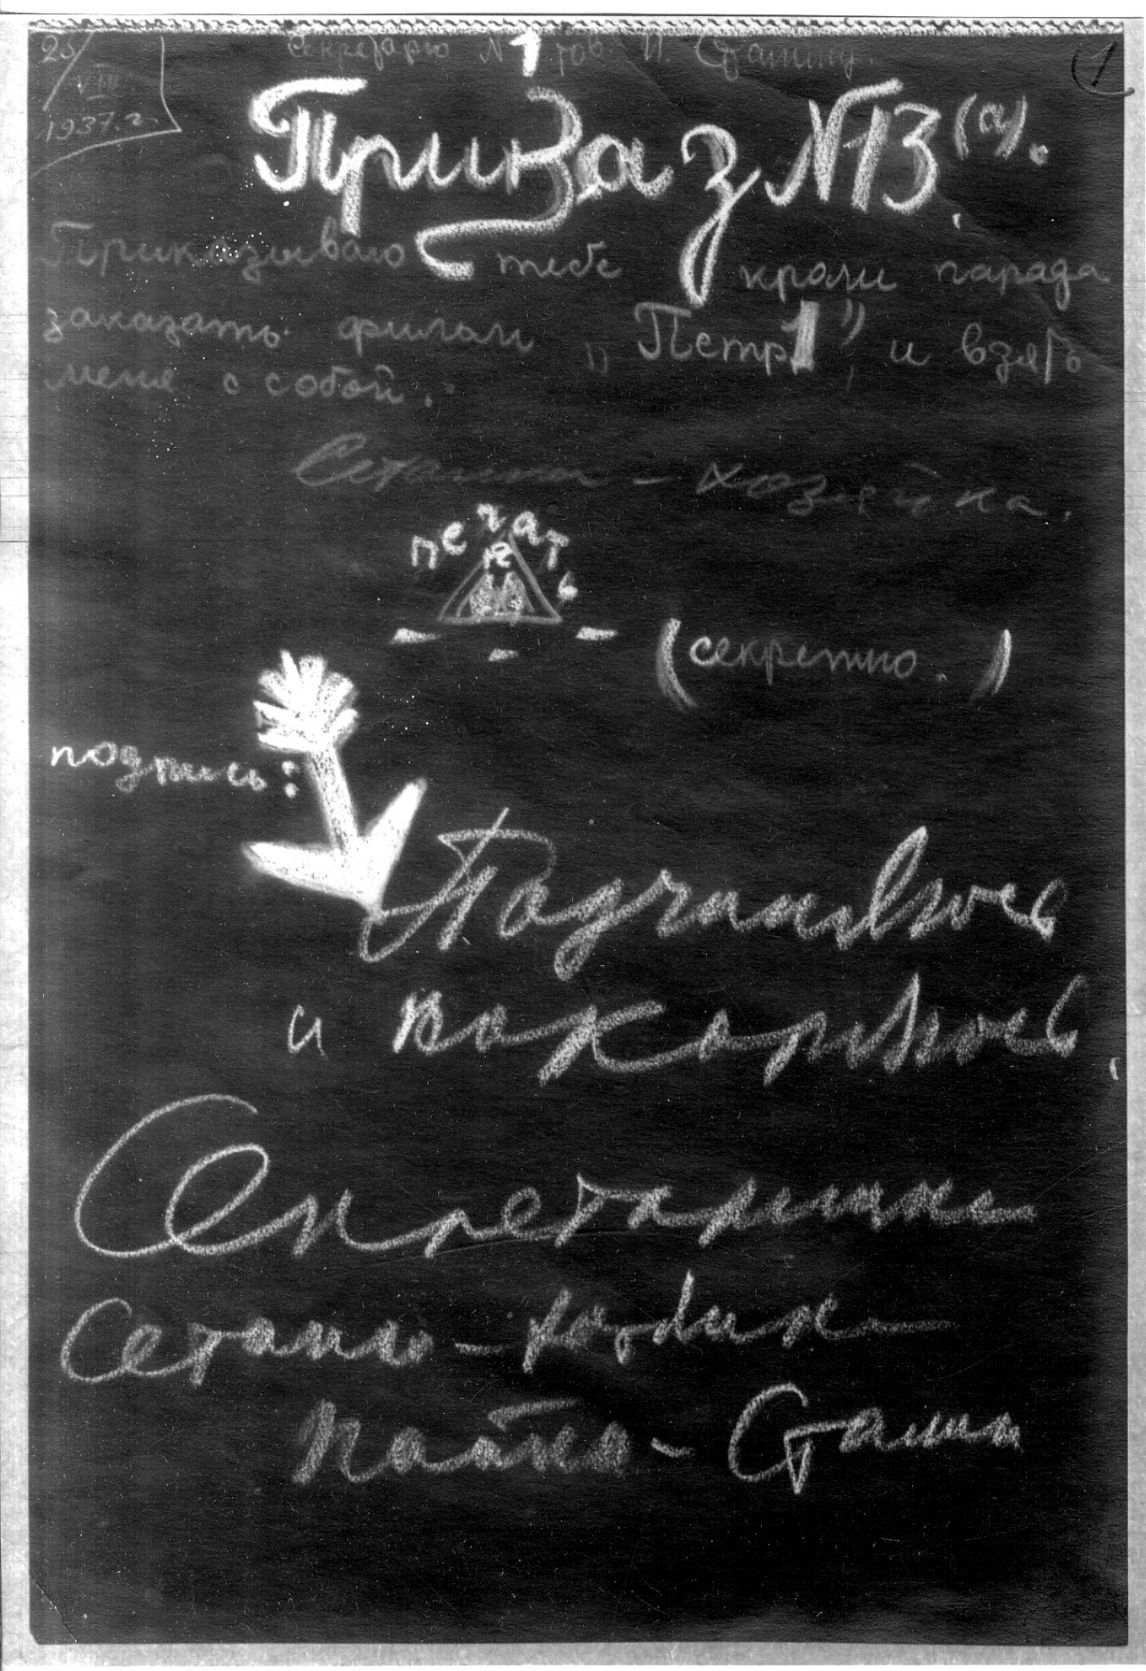 25/VIII 1937.г.
Секретарю N 1 тов. И. Сталину.
1
Приказ N13 (а).
Приказываю тебе кроме парада
заказать фильм „Петр 1" и взять
меня с собой.
Сетанка - хозяйка.
печать
(секретно.)
подпись:
Подчиняюсь
и покоряюсь
Секретаришка
Сетанки-хозяйки
Сталин